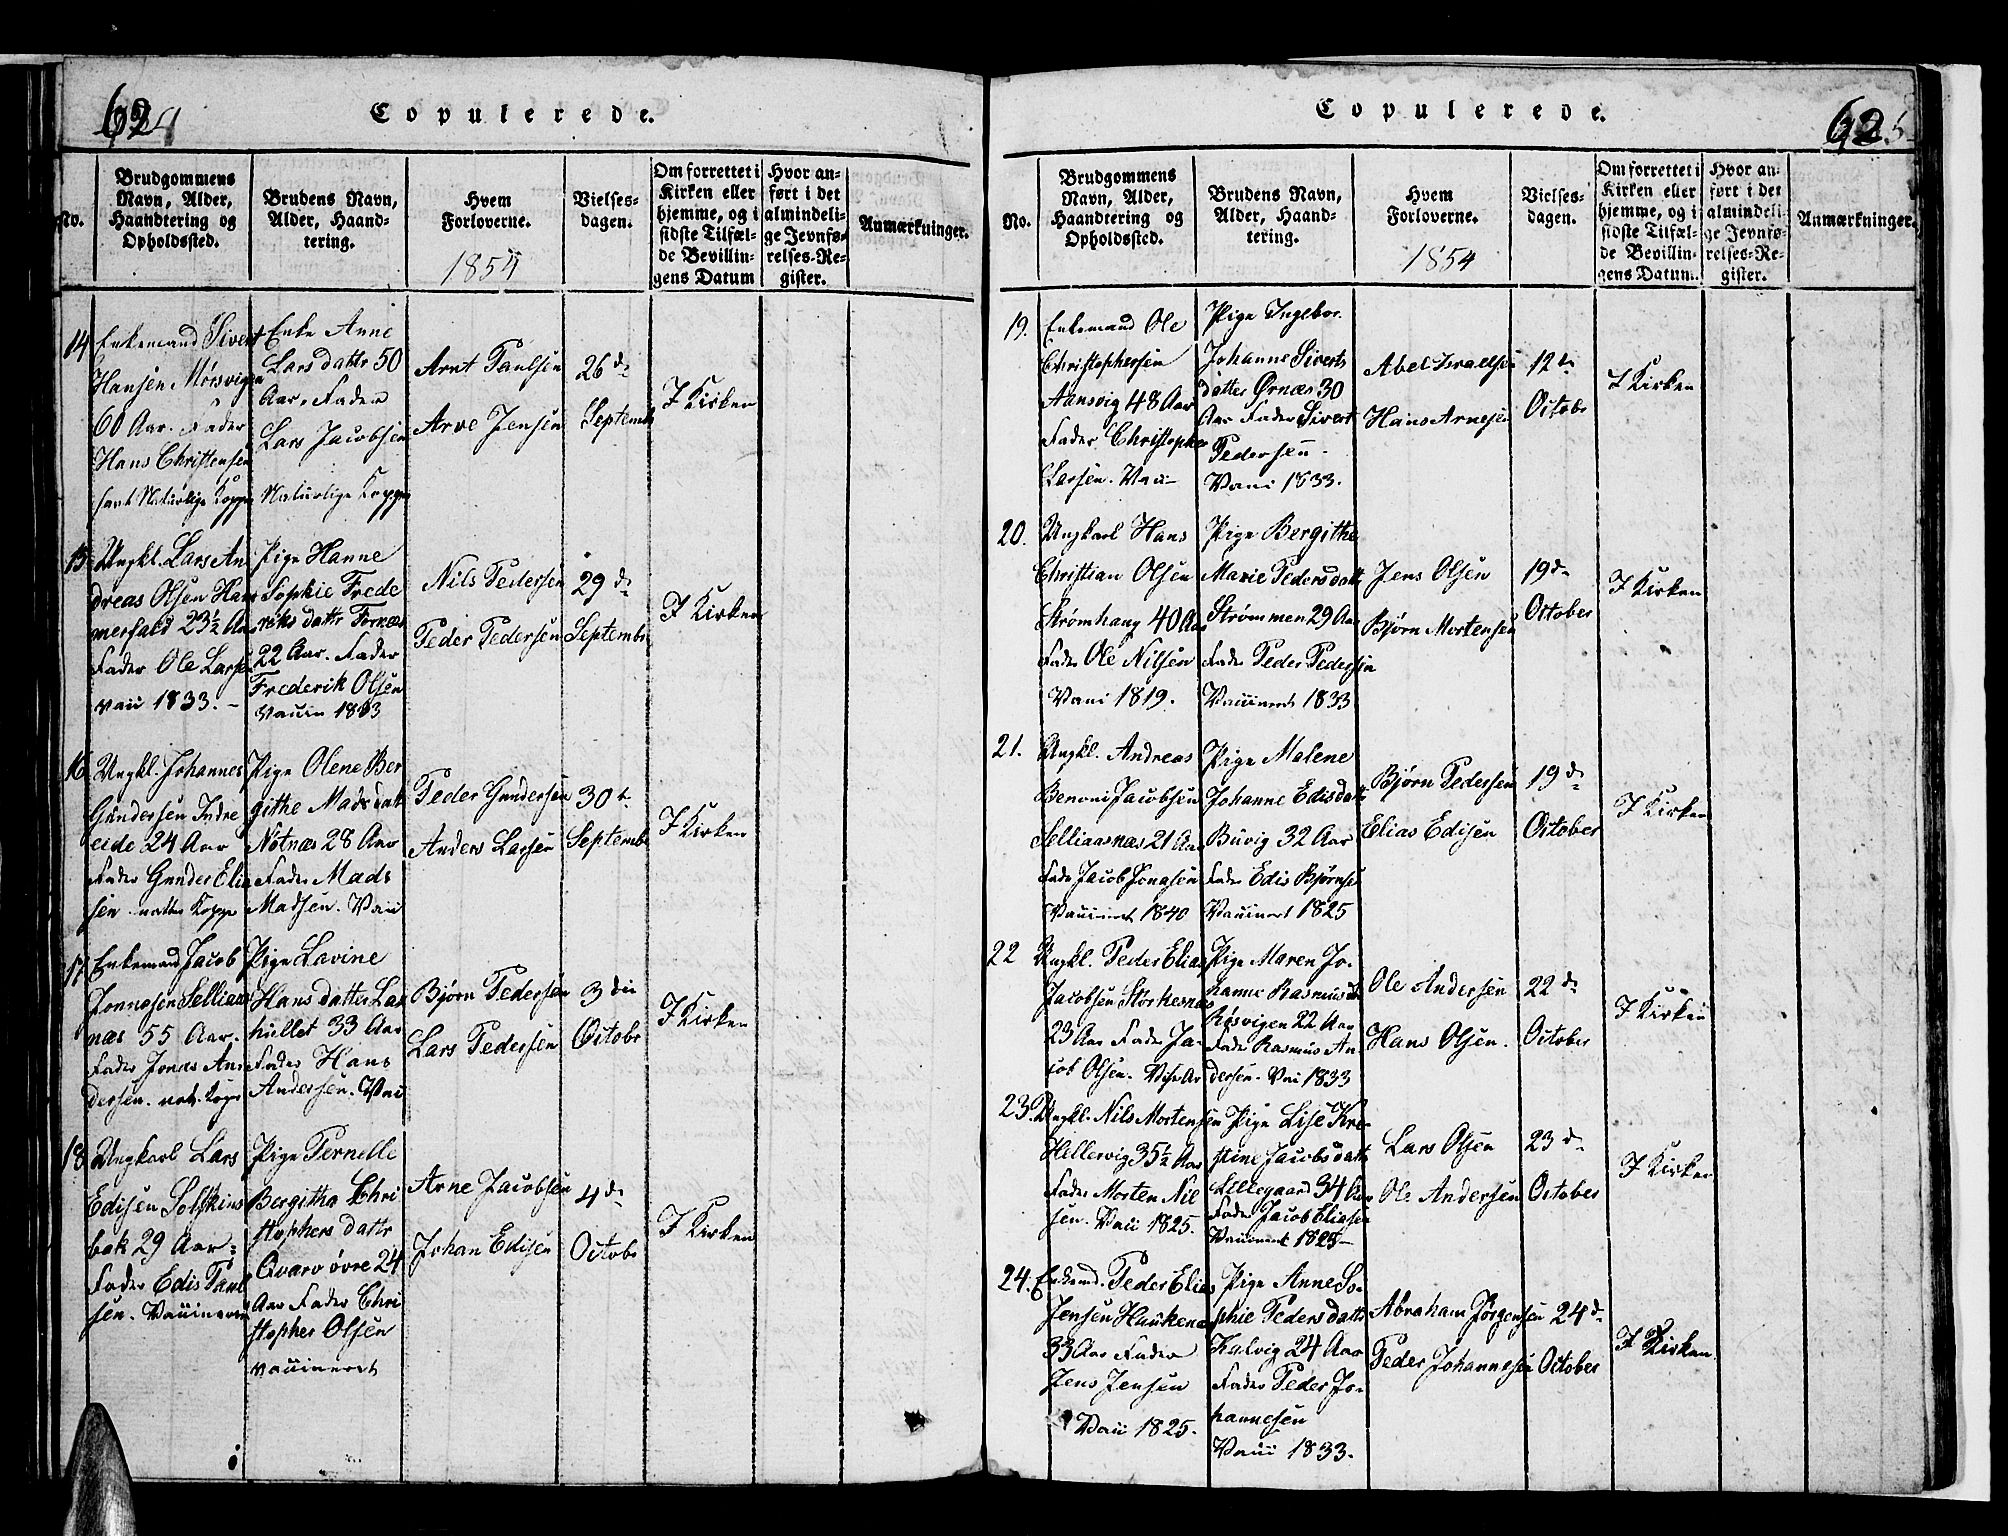 Copulerede.
No.
Brudgommens
Navn, Alder,
Haandtering og
Opholdssted.
Brudens Navn,
Alder, Haand-
tering.
Hvem
Forloverne.
1854
Vielses-
dagen.
Om forrettet i
Kirken eller
hjemme, og i
sidste Tilfæl-
de Bevillin-
gens Datum
Hvor an-
ført i det
almindeli-
ge Jevnfø-
relses-Re-
gister.
Anmærkninger.
14
Enkemand Sivert
Hansen Mørsvigen
60 Aar. Fader
Hans Christensen
havt Naturlige Kopper
Enke Anne
Lars datter 50
Aar. Fader
Lars Jacobsen
Naturlige Kopper
Arnt Paulsen
Arve Jensen
26 de
Septemb
I Kirken
15
Ungkl. Lars An
dreas Olsen Ham
merfald 23½ Aar
Fader Ole Larsen
vacc 1833.
Pige Hanne
Sophie Frede
riks dattr Fornæs
22 Aar. Fader
Frederik Olsen
vaccin 1833
Nils Pedersen
Peder Pedersen
29 de
Septembr
I Kirken
16
Ungkl. Johannes
Gundersen Indre
eide 24 Aar
Fader Gunder Elia
sen
Pige Olene Ber
githe Mads datt
Nøtnæs 28 Aar
Fader Mads
Madsen. Vacc
Peder Gundersen
Anders Larsen
30 t
Septembr
I Kirken
17
Enkemand Jacob
Jonnasen Selliaas
næs 55 Aar.
Fader Jonas An
dersen.
Pige Lovine
Hans datter Lax
hullet 33 Aar
Fader Hans
Andersen. Vac
Bjørn Pedersen
Lars Pedersen
3 die
Octobr
I Kirken
18
Ungkarl Lars
Edisen Solskins
bak 29 Aar.
Fader Edis Paul
sen. Vaccineret
Pige Pernelle
Bergitha Chri
stophers dattr
Qvarv øvre 24
Aar Fader Chri
stopher Olsen
vaccineret
Arne Jacobsen
Johan Edisen
4 de
Octobr
I Kirken
Copulerede.
No.
Brudgommens
Navn, Alder,
Haandtering og
Opholdssted.
Brudens Navn,
Alder, Haand-
tering.
Hvem
Forloverne.
1854
Vielses-
dagen.
Om forrettet i
Kirken eller
hjemme, og i
sidste Tilfæl-
de Bevillin-
gens Datum.
Hvor an-
ført i det
almindeli-
ge Jevnfø-
relses-Re-
gister.
Anmærkninger.
19.
Enkemand Ole
Christophersen
Aansvig 48 Aar
Fader Christopher
Larsen. Vac
Pige Ingebor
Johanne Siverts
datter Ørnæs 30
Aar Fader Sivert
Pedersen
Vacc 1833.
Abel Israelsen
Hans Arnesen
12 te
Octobr
I Kirken
20.
Ungkarl Hans
Christian Olsen
Strømhaug 40 Aar
Fader Ole Nilsen
Vacc 1819.
Pige Bergithe
Marie Peders datt
Strømmen 29 Aar
Fader Peder Pedersen
Vaccineret 1833
Jens Olsen
Bjørn Mortensen
19 de
October
I Kirken
21.
Ungkl. Andreas
Benoni Jacobsen
Selliaasnæs 21 Aar
Fader Jacob Jonasen
Vaccineret 1840
Pige Malene
Johanne Edisdatt
Buvig 32 Aar
Fader Edis Bjørnsen
Vaccineret 1825
Bjørn Pedersen
Elias Edisen
19 de
October
I Kirken
22
Ungkl. Peder Elias
Jacobsen Storkesnæs
23 Aar Fader Ja-
cob Olsen.
Pige Maren Jo-
hanne Rasmus dt
Røsvigen 22 Aar
Fader Rasmus An
dersen. Vac 1833
Ole Andersen
Hans Olsen.
22 de
October
I Kirken
23.
Ungkl. Nils Mortensen
Hellervig 35½ Aar
Fader Morten Nil
sen. Vacc 1825.
Pige Lise Kre-
stine Jacobs datt
Lillegaard 34 Aar
Fader Jacob Eliasen
Vaccineret 1825
Lars Olsen
Ole Andersen
23 de
October
I Kirken
24.
Enkemd. Peder Elias
Jensen Haukenæs
33 Aar Fader
Jens Jensen
Vacc 1825.
Pige Anne So-
phie Peders datt
Kalvig 24 Aar
Fader Peder Jo-
hannesen
Vacc 1833.
Abraham Jørgensen
Peder Johannesen
24 de
October
I Kirken